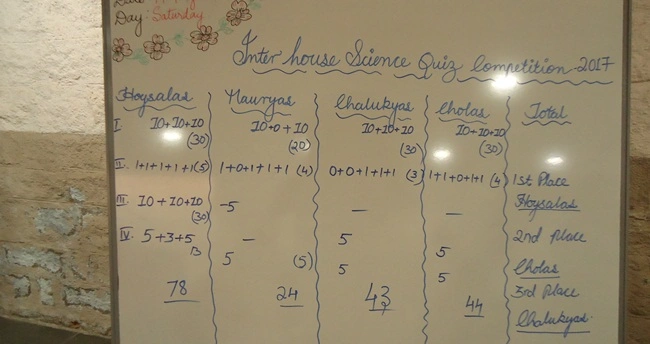 Day: Saturday
Inter house Science Quiz Competition-2017
Hoysalas Mauryas Chalukyas Cholas Total
I. 10+10+10 10+0+10 10+10+10 10+10+10
(30) (20) (30) (30)
II. 1+1+1+1+1(5) 1+0+1+1+1 (4) 0+0+1+1+1 (3) 1+1+0+1+1 (4) 1st Place
III. 10+10+10 -5 — — Hoysalas
(30)
IV. 5+3+5 — 5 2nd Place
13 5 (5) 5 5 Cholas
5
78 24 43 44 3rd Place
Chalukyas